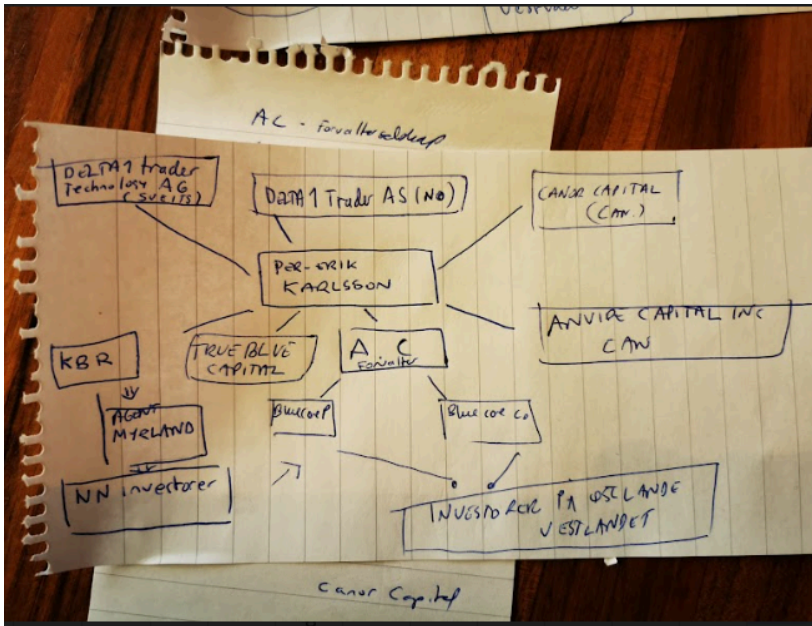 VESTLAND
AC - Forvalterselskap
DELTA1 trader
Technology AG
(SVEITS)
DELTA 1 Trader AS (NO)
CANOR CAPITAL
(CAN.)
PER-ERIK
KARLSSON
ANVIRE CAPITAL INC
CAN
KBR
TRUE BLUE
CAPITAL
A C
Forvalter
AGENT
MYRLAND
Bluecoe P
Bluecoe Co
NN investorer
INVESTORER PÅ
VESTLANDET
Canor Capital